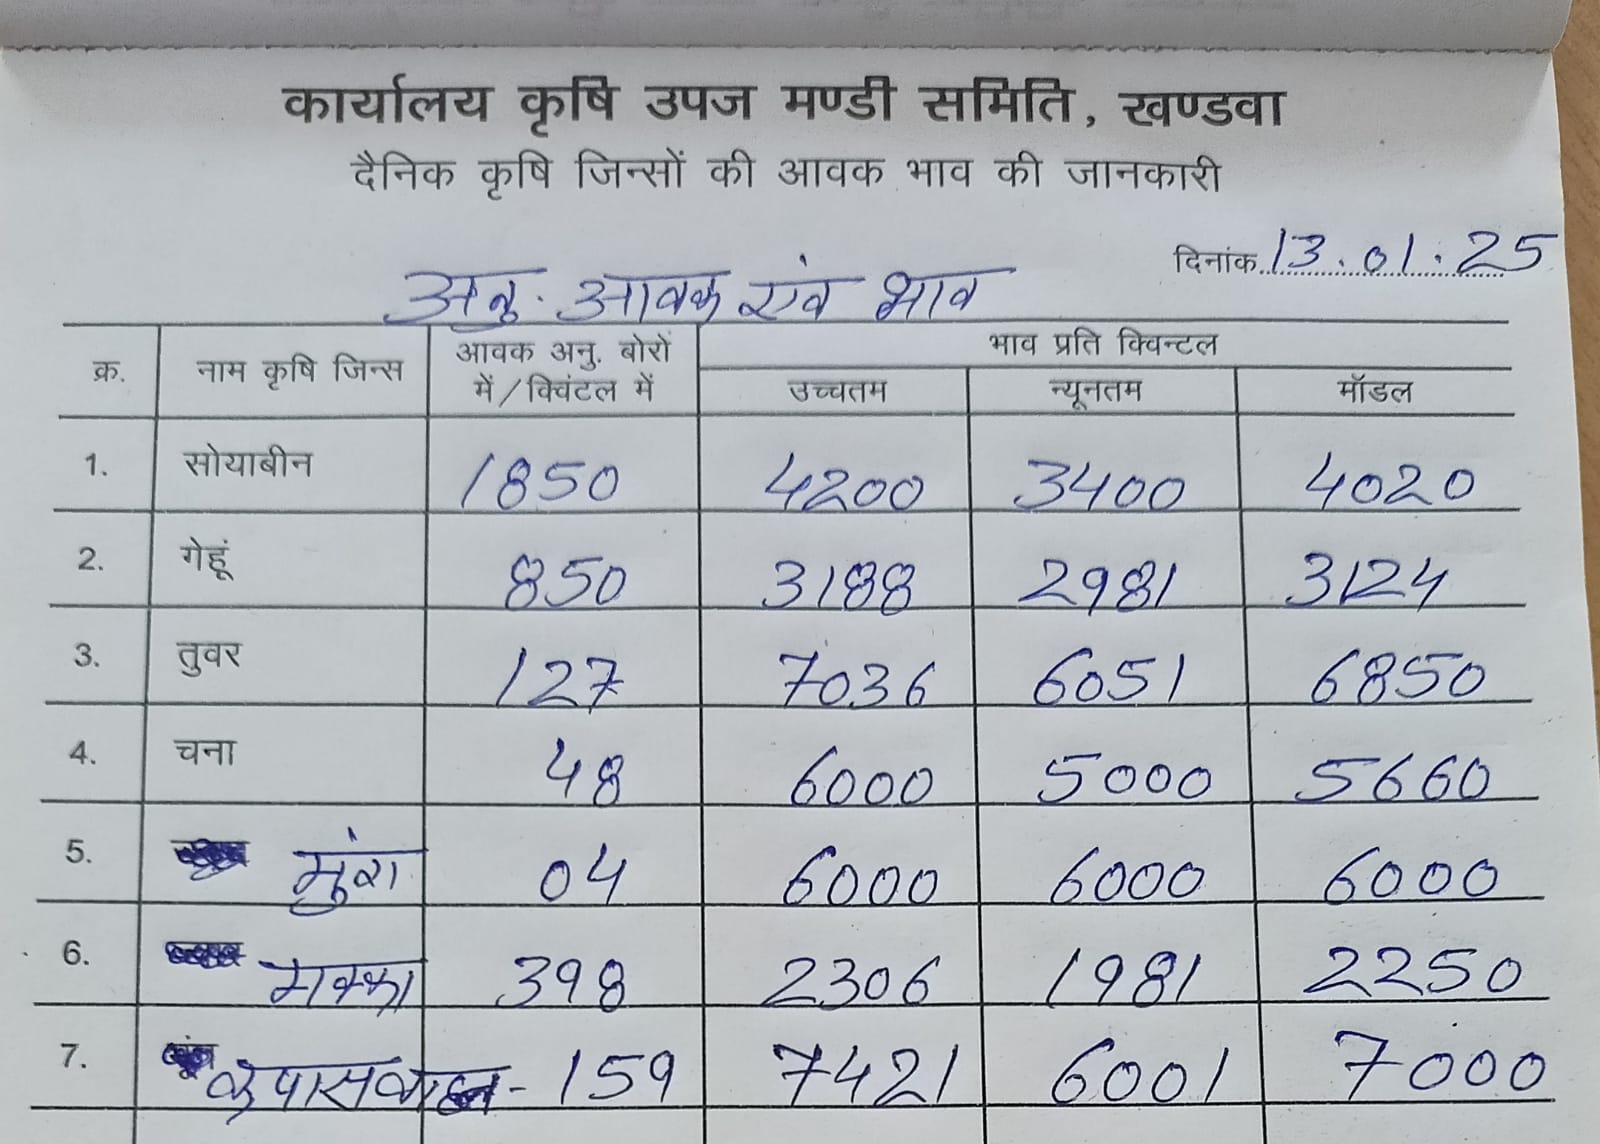 कार्यालय कृषि उपज मण्डी समिति, खण्डवा
दैनिक कृषि जिन्सों की आवक भाव की जानकारी
दिनांक 13.01.25
अनु. आवक एंव भाव
क्र. नाम कृषि जिन्स आवक अनु. बोरों में/क्विंटल में भाव प्रति क्विन्टल
उच्चतम न्यूनतम मॉडल
1. सोयाबीन 1850 4200 3400 4020
2. गेहूं 850 3188 2981 3124
3. तुवर 127 7036 6051 6850
4. चना 48 6000 5000 5660
5. मुंग 04 6000 6000 6000
6. मक्का 398 2306 1981 2250
7. कपास वाहन - 159 7421 6001 7000